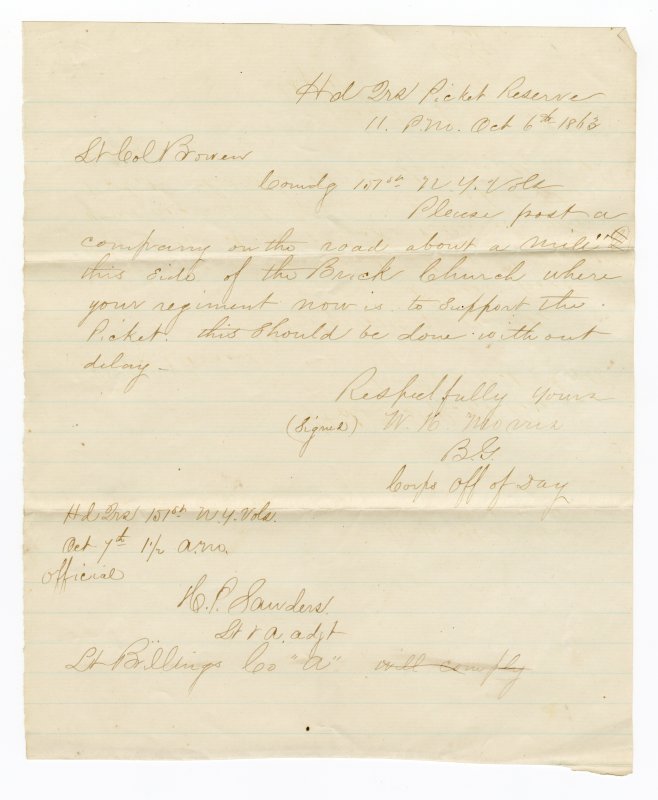 Hd Qrs Picket Reserve
11. P.M. Oct 6th 1863
Lt Col Bowen
Comdg 151st N.Y. Vols
Please post a
company on the road about a mile
this side of the Brick Church where
your regiment now is to support the
Picket. this should be done without
delay—
Respectfully yours
(Signed) W. H. Morris
B.G.
Corps Off of Day
Hd Qrs 151st N.Y. Vols.
Oct 7th 1½ A.M.
Official
H. P. Sanders
Lt & A. adjt
Lt Billings Co "A" will comply